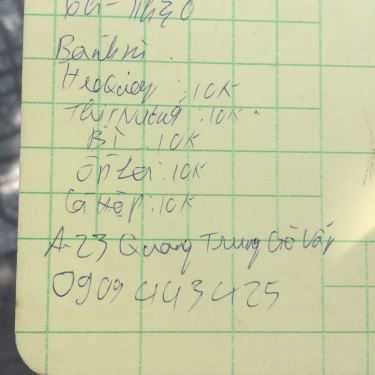 6h - 11h30
Bánh mì
Heo Quay : 10K
Thịt Nướng : 10K
Bì 10K
Ốp La : 10K
Cá Hộp : 10K
A-23 Quang Trung Gò Vấp
0909 443 425